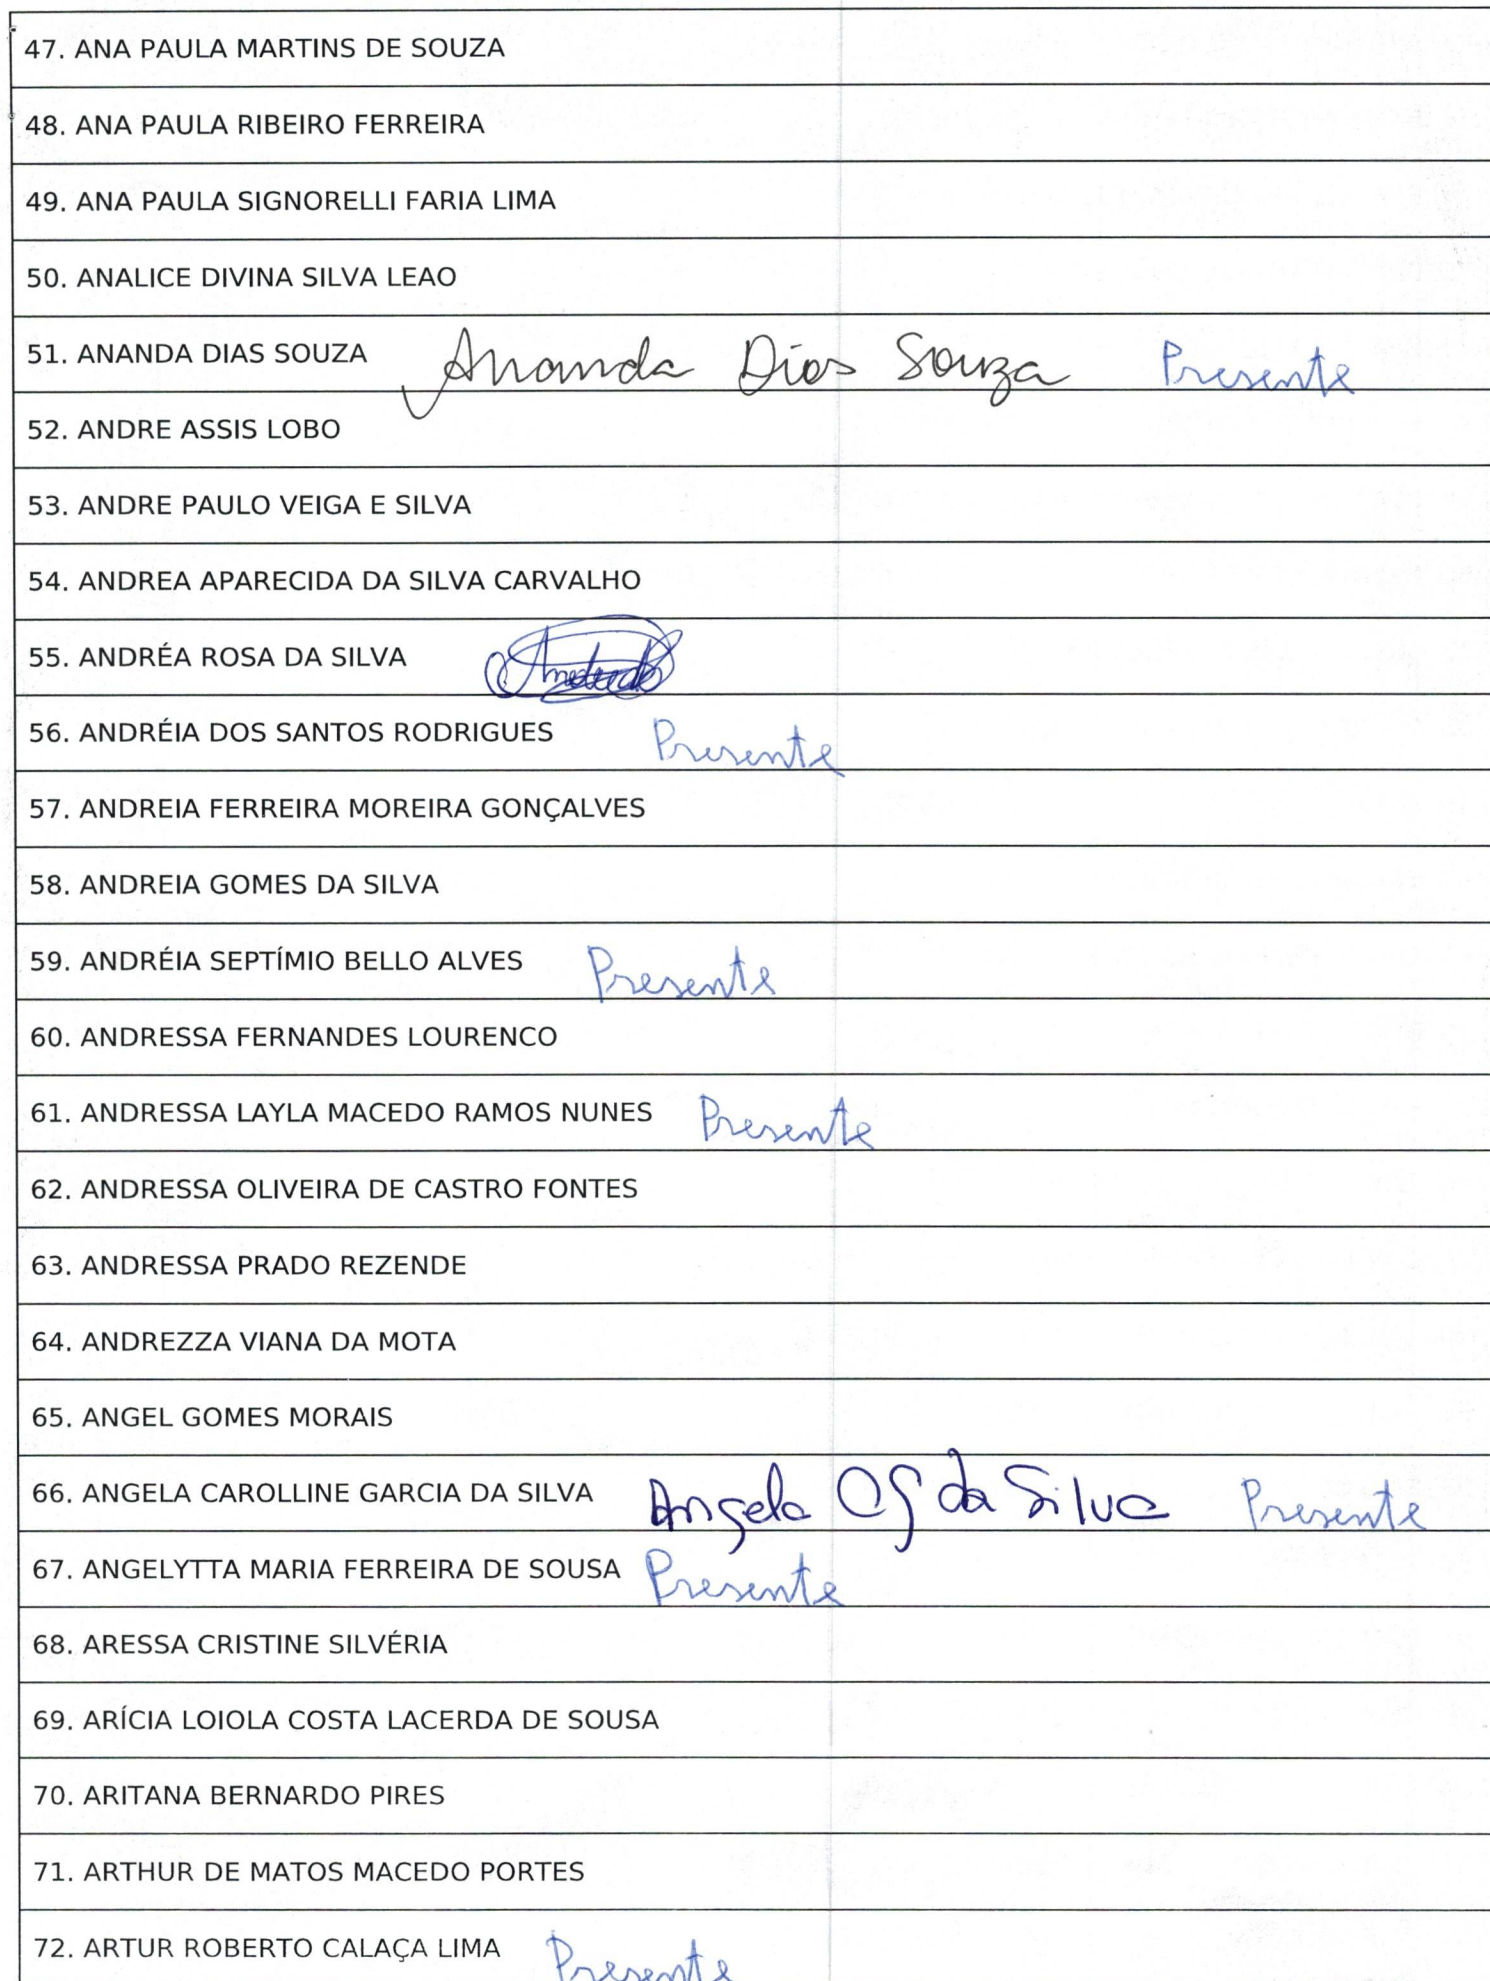 47. ANA PAULA MARTINS DE SOUZA
48. ANA PAULA RIBEIRO FERREIRA
49. ANA PAULA SIGNORELLI FARIA LIMA
50. ANALICE DIVINA SILVA LEAO
51. ANANDA DIAS SOUZA Ananda Dias Souza Presente
52. ANDRE ASSIS LOBO
53. ANDRE PAULO VEIGA E SILVA
54. ANDREA APARECIDA DA SILVA CARVALHO
55. ANDRÉA ROSA DA SILVA
56. ANDRÉIA DOS SANTOS RODRIGUES Presente
57. ANDREIA FERREIRA MOREIRA GONÇALVES
58. ANDREIA GOMES DA SILVA
59. ANDRÉIA SEPTÍMIO BELLO ALVES Presente
60. ANDRESSA FERNANDES LOURENCO
61. ANDRESSA LAYLA MACEDO RAMOS NUNES Presente
62. ANDRESSA OLIVEIRA DE CASTRO FONTES
63. ANDRESSA PRADO REZENDE
64. ANDREZZA VIANA DA MOTA
65. ANGEL GOMES MORAIS
66. ANGELA CAROLLINE GARCIA DA SILVA Angela CG da Silva Presente
67. ANGELYTTA MARIA FERREIRA DE SOUSA Presente
68. ARESSA CRISTINE SILVÉRIA
69. ARÍCIA LOIOLA COSTA LACERDA DE SOUSA
70. ARITANA BERNARDO PIRES
71. ARTHUR DE MATOS MACEDO PORTES
72. ARTUR ROBERTO CALAÇA LIMA Presente